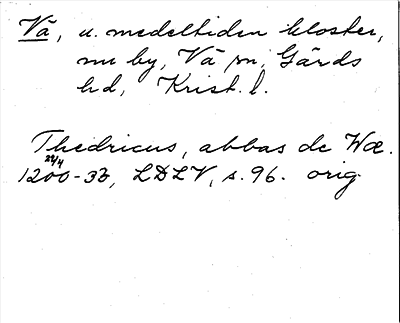 Vä, u. medeltiden kloster,
nu by, Vä sn, Gärds
hd, Krist. l.
Thedricus, abbas de Wæ.
22/4
1200-32, LDLV, s. 96. orig